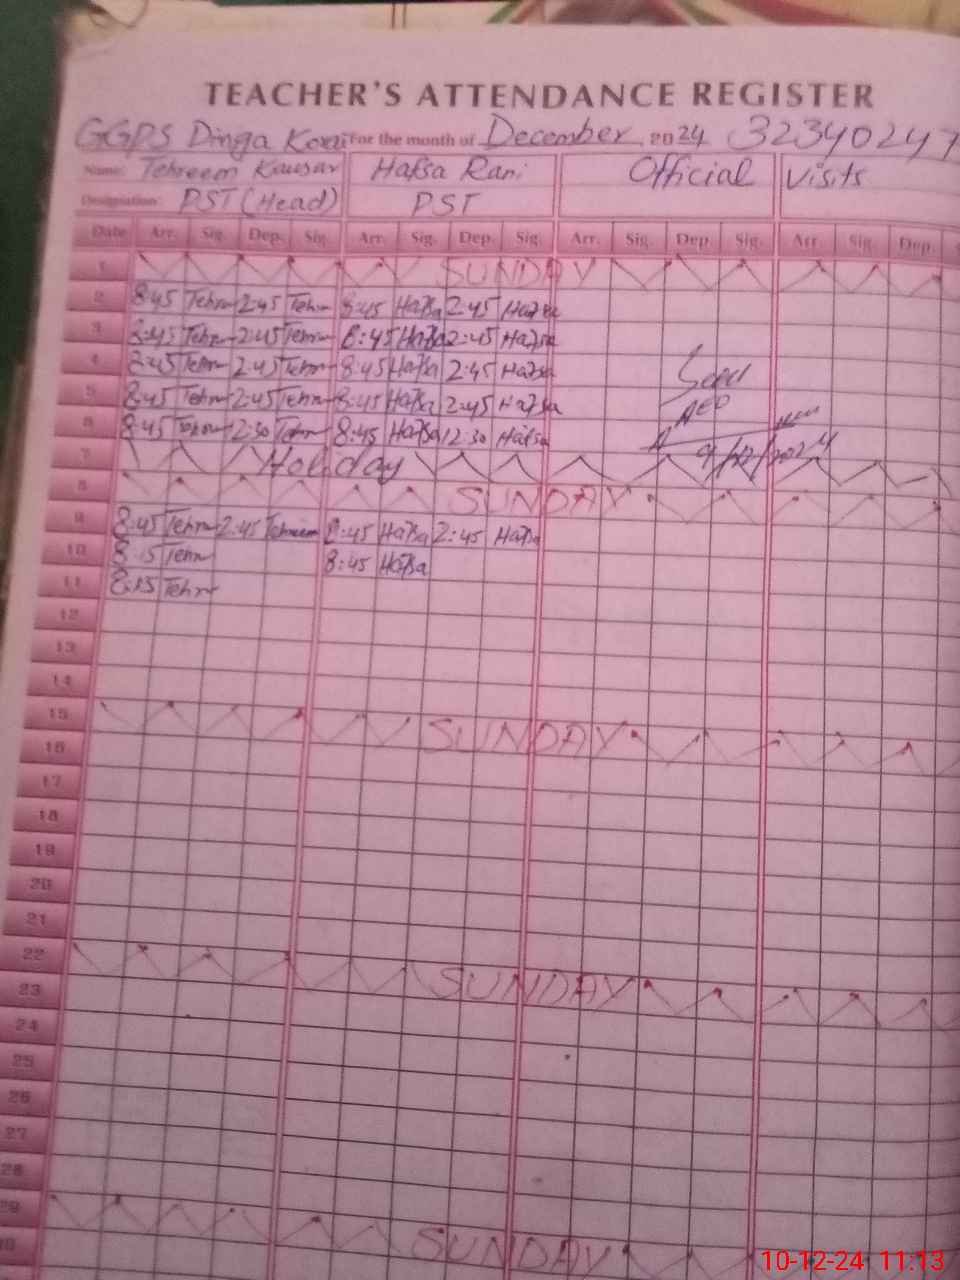 TEACHER'S ATTENDANCE REGISTER
GGPS Dinga Korai For the month of December 2024 32340247
Name: Tehreem Kausar Hafsa Rani Official Visits
Designation: PST (Head) PST
Date Arr. Sig. Dep. Sig. Arr. Sig. Dep. Sig. Arr. Sig. Dep. Sig. Arr. Sig. Dep.
1 SUNDAY
2 8:45 Tehrm 2:45 Tehrm 8:45 Hafsa 2:45 Hafsa
3 8:45 Tehrm 2:45 Tehrm 8:45 Hafsa 2:45 Hafsa
4 8:45 Tehrm 2:45 Tehrm 8:45 Hafsa 2:45 Hafsa
5 8:45 Tehrm 2:45 Tehrm 8:45 Hafsa 2:45 Hafsa
Seen
AEO
6 8:45 Tehrm 2:30 Tehrm 8:45 Hafsa 12:30 Hafsa
9/12/2024
7 Holiday
8 SUNDAY
9 8:45 Tehrm 2:45 Tehreem 8:45 Hafsa 2:45 Hafsa
10 8:15 Tehrm 8:45 Hafsa
11 8:15 Tehrm
12
13
14
15 SUNDAY
16
17
18
19
20
21
22 SUNDAY
23
24
25
26
27
28
29 SUNDAY
10-12-24 11:13